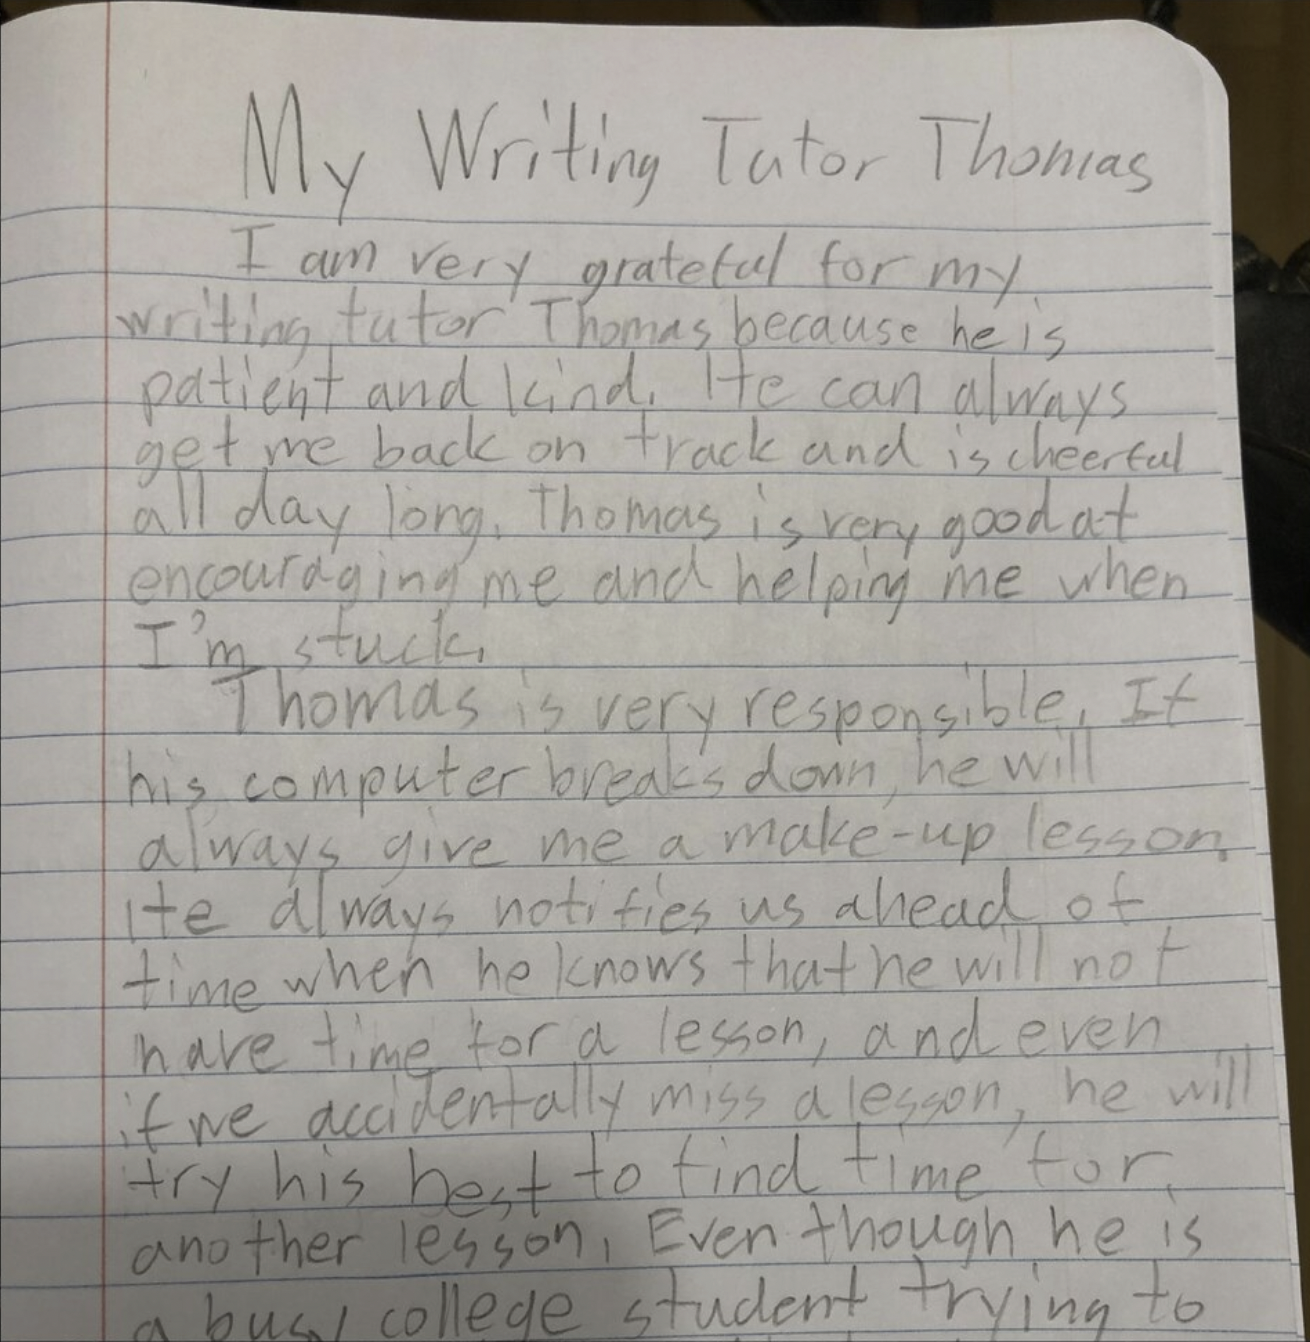 My Writing Tutor Thomas
I am very grateful for my
writing tutor Thomas because he is
patient and kind. He can always
get me back on track and is cheerful
all day long. Thomas is very good at
encouraging me and helping me when
I'm stuck.
Thomas is very responsible. If
his computer breaks down, he will
always give me a make-up lesson.
He always notifies us ahead of
time when he knows that he will not
have time for a lesson, and even
if we accidentally miss a lesson, he will
try his best to find time for
another lesson. Even though he is
a busy college student trying to